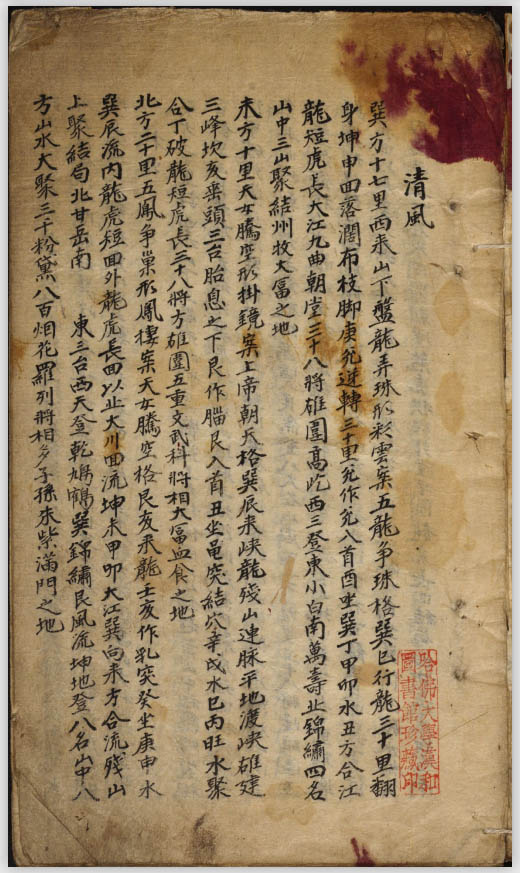 清風
巽方十七里西來山下盤龍弄珠形彩雲案五龍爭珠格巽巳行龍三十里翻
身坤申回落濶布枝脚庚兌逆轉三十里兌作兌入首酉坐巽丁甲卯水丑方合江
龍短虎長大江九曲朝堂三十八將雄圍高屹西三登東小白南萬壽北錦繡四名
山中三山聚結州牧大富之地
未方十里天女騰空形掛鏡案上帝朝天格巽辰來峽龍殘山連脉平地渡峽雄建
三峰坎亥垂頭三台胎息之下艮作腦艮入首丑坐黽突結穴辛戌水巳丙旺水聚
合丁破龍短虎長三十八將方雄圍五重文武科將相大富血食之地
北方二十里五鳳爭巢形鳳樓案天女騰空格艮亥來龍壬亥作乳突癸坐庚申水
巽辰流內龍虎短回外龍虎長回以止大川回流坤未甲卯大江巽向來方合流殘山
上聚結局北甘岳南 東三台西天登乾鳩鶴巽錦繡艮風流坤地登八名山中八
方山水大聚三千粉黛八百烟花羅列將相多子孫朱紫滿門之地
哈佛大學漢和
圖書館珍藏印